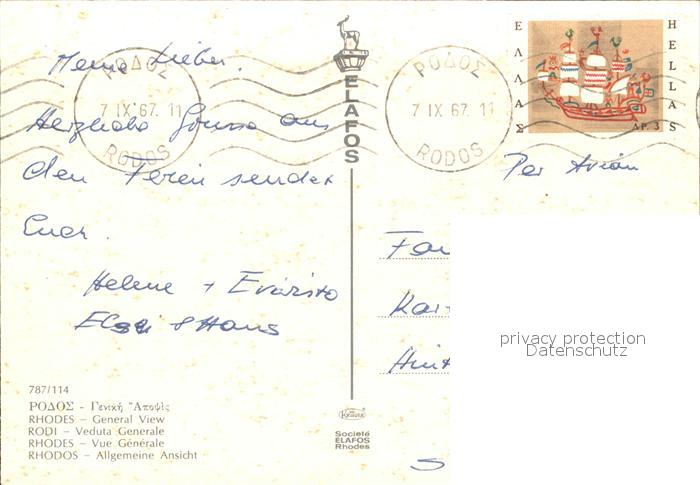 Meine Lieben.
Herzliche Grüsse aus
den Ferien sendet
Euch.
Helene + Evaristo
Elsi & Hans
787/114
ΡΟΔΟΣ - Γενική Ἄποψις
RHODES – General View
RODI – Veduta Generale
RHODES – Vue Générale
RHODOS – Allgemeine Ansicht
ΡΟΔΟΣ
7 IX 67. 11
RODOS
ELAFOS
Société
ELAFOS
Rhodes
ΡΟΔΟΣ
7 IX 67. 11
RODOS
ΕΛΛΑΣ
HELLAS
ΔΡ. 3
Per Avion
Fa
Kar
Hint
S
privacy protection
Datenschutz